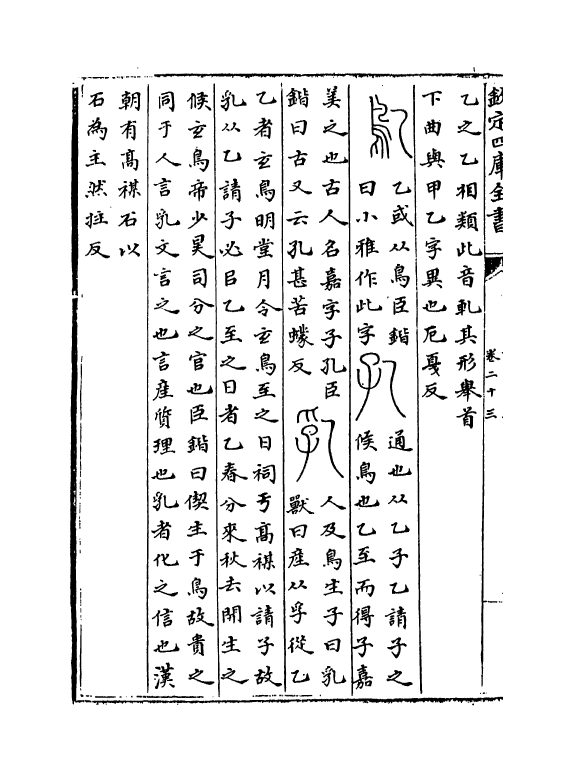 欽定四庫全書
卷二十三
乙之乙相類此音軋其形舉首
下曲與甲乙字異也厄戛反
鳦
乙或从鳥臣鍇
曰小雅作此字
孔
通也从乙子乙請子之
候鳥也乙至而得子嘉
美之也古人名嘉字子孔臣
鍇曰古又云孔甚苦蠓反
乳
人及鳥生子曰乳
獸曰産从孚從乙
乙者玄鳥明堂月令玄鳥至之日祠于髙禖以請子故
乳从乙請子必㠯乙至之日者乙春分來秋去開生之
候玄鳥帝少昊司分之官也臣鍇曰偰生于鳥故貴之
同于人言乳文言之也言産質理也乳者化之信也漢
朝有髙禖石以
石為主然拄反